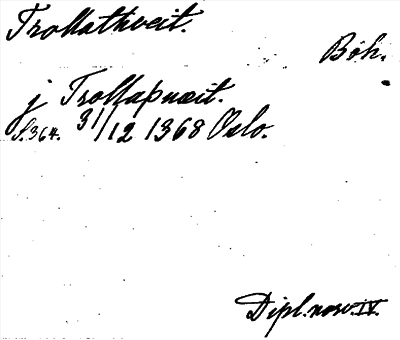 Trollathveit.
Bøh.
j Trollaþuæit.
S.364. 31/12 1368 Oslo.
Dipl. norv. IV.